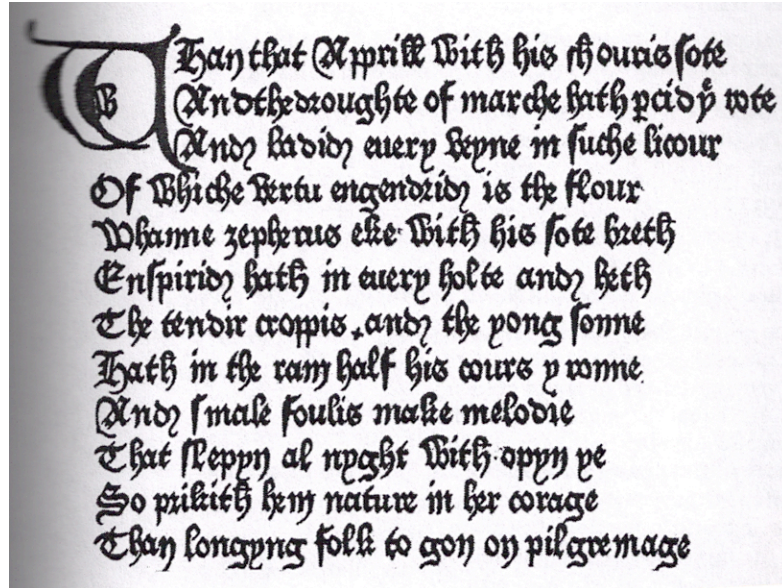 WHan that Apprill with his shouris sote
And the droughte of marche hath ꝑcid yͤ rote
And badid euery veyne in suche licour
Of whiche vertu engendrid is the flour
Whanne zepherus eke with his sote breth
Enspirid hath in euery holte and heth
The tendir croppis and the yong sonne
Hath in the ram half his cours y ronne
And smale foulis make melodie
That slepyn al nyght with opyn ye
So prikith hem nature in her corage
Than longyng folk to gon on pilgremage